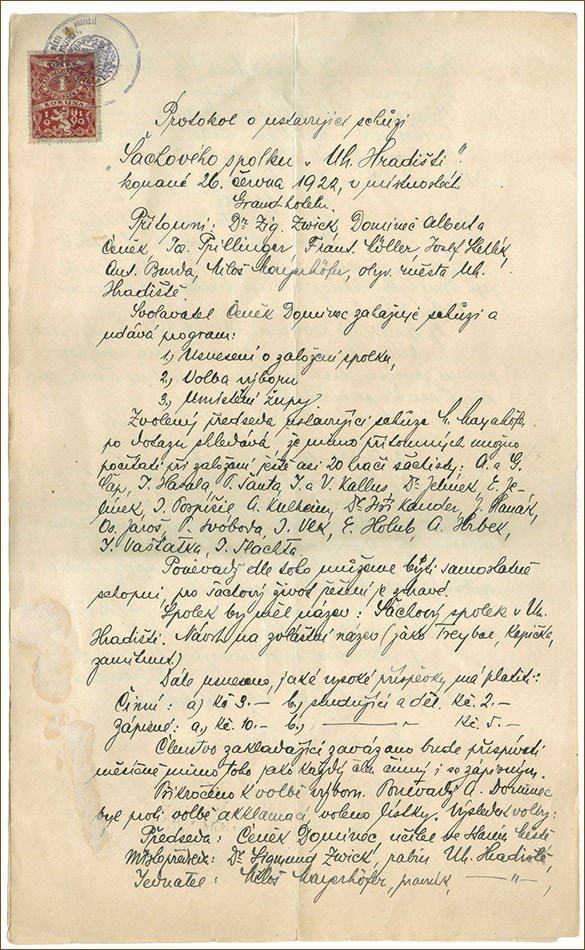 1
KORUNA
Protokol o ustavující schůzi
"Šachového spolku v Uh. Hradišti".
konané 26. června 1922, v místnostech
Grandhotelu.
Přítomni: Dr Zig. Zwick, Dominec Albert a
Čeněk, Trillinger, Frant. Müller, Josef
Ant. Burda, Miloš Mayerhöfer, města Uh.
Hradiště.
Svolavatel Čeněk Dominec zahajuje schůzi a
udává program:
1.) Usnesení o založení spolku,
2.) Volba výboru
3.) Umístění župy
Zvolený předseda ustavující schůze M. Mayerhöfer
po dotazu shledává, že mimo přítomných možno
počítati při založení ještě asi 20 hráčů šachisty: A. a G.
Čáp, J. Havala, P. Šanta, J. a V. Kallus, Dr Jelínek, E. Je-
línek, J. Pospíšil, A. Kulheim, Dr Jiří Kander, J. Hanák,
Os. Jaroš, P. Svoboda, J. Vlk, E. Holub, A. Hrbek,
J. Vaštatka, J. Šlachta.
Poněvadž dle toho můžeme býti samostatně
schopni, pro šachový život řešení je zdravé.
Spolek by měl název: Šachový spolek v Uh.
Hradišti. Návrh na zvláštní název (jako Treybal, Kopička,
zamítnut)
Dále usneseno, jaké vysoké příspěvky má platiti:
Činní: a) Kč 3.- b.) studující a děl. Kč. 2.-
Zápisné: a.) Kč. 10.- b.) ——— " ——— Kč. 5.-
Členstvo zakládající zavázáno bude přispívati
měsíčně mimo toho jako každý člen činný i se zápisným.
Přikročeno k volbě výboru. Poněvadž A. Dominec
byl proti volbě akklamací, voleno lístky. Výsledek volby:
Předseda: Čeněk Dominec, učitel ve Starém Městě
Místopředseda: Dr Sigmund Zwick, rabín Uh. Hradiště,
Jednatel: Miloš Mayerhöfer, právník, —— " ——,